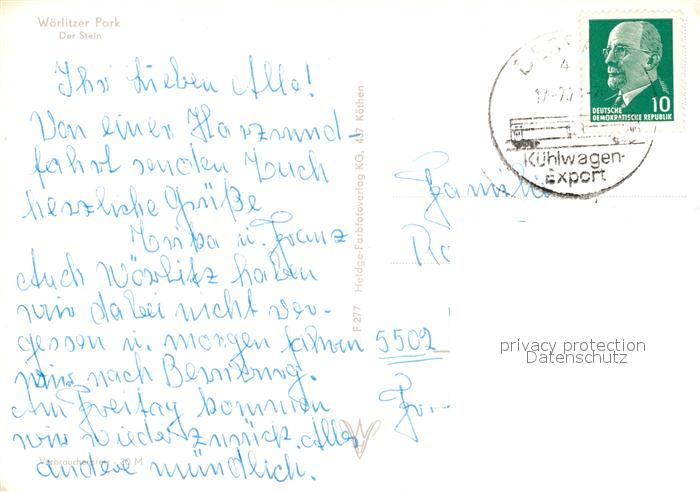 Wörlitzer Park
Der Stein
Ihr Lieben Alle!
Von einer Harzrund-
fahrt senden Euch
herzliche Grüße
u. Franz
Auch Wörlitz haben
wir dabei nicht ver-
gessen u. morgen fahren
wir nach Bernburg.
Am Freitag kommen
wir wieder zurück. Alles
andere mündlich.
Verbraucherpreis
M
F 277 Heldge-Farbfotoverlag KG, 437 Köthen
DEUTSCHE
DEMOKRATISCHE REPUBLIK
10
Kühlwagen-
Export
Familie
5502
privacy protection
Datenschutz